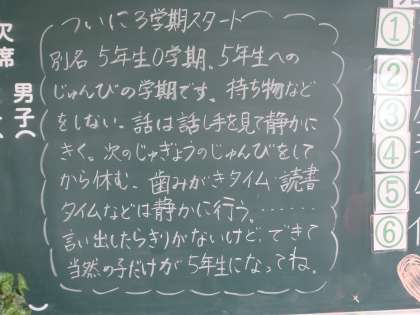 ついに3学期スタート
別名 5年生0学期。5年生への
じゅんびの学期です。持ち物など
をしない。話は話し手を見て静かに
きく。次のじゅぎょうのじゅんびをして
から休む。歯みがきタイム 読書
タイムなどは静かに行う。………
言い出したらきりがないけど、できて
当然の子だけが5年生になってね。
欠席
男子(
①
②
③
④
⑤
⑥